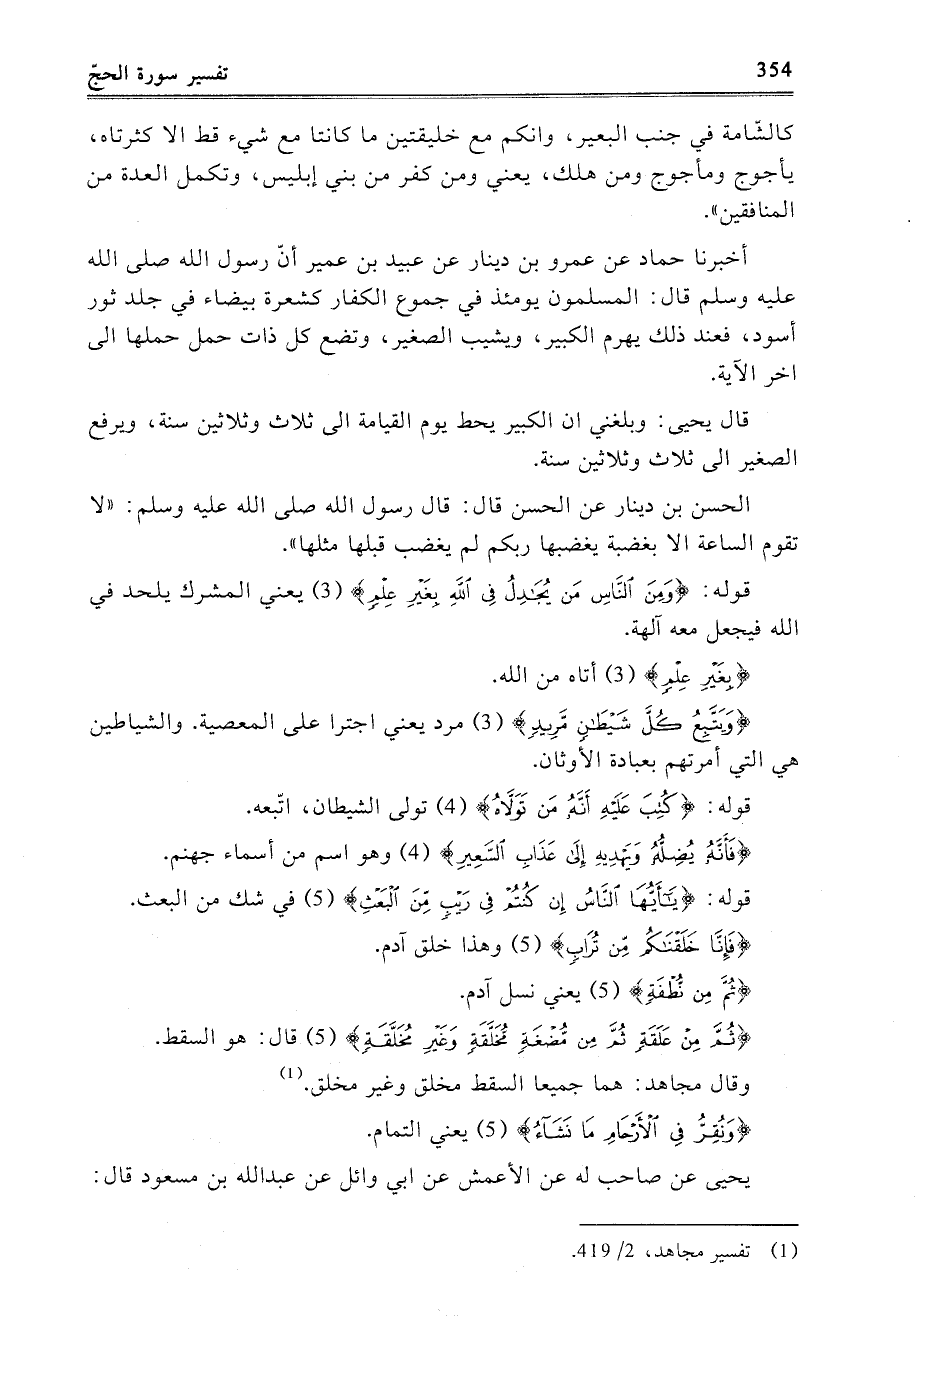 354
تفسير سورة الحجّ
كالشّامة في جنب البعير، وانكم مع خليقتين ما كانتا مع شيء قط الا كثرتاه،
يأجوج ومأجوج ومن هلك، يعني ومن كفر من بني إبليس، وتكمل العدة من
المنافقين».
أخبرنا حماد عن عمرو بن دينار عن عبيد بن عمير أنّ رسول الله صلى الله
عليه وسلم قال: المسلمون يومئذ في جموع الكفار كشعرة بيضاء في جلد ثور
أسود، فعند ذلك يهرم الكبير، ويشيب الصغير، وتضع كل ذات حمل حملها الى
اخر الآية.
قال يحيى: وبلغني ان الكبير يحط يوم القيامة الى ثلاث وثلاثين سنة، ويرفع
الصغير الى ثلاث وثلاثين سنة.
الحسن بن دينار عن الحسن قال: قال رسول الله صلى الله عليه وسلم: «لا
تقوم الساعة الا بغضبة يغضبها ربكم لم يغضب قبلها مثلها».
قوله: ﴿وَمِنَ ٱلنَّاسِ مَن يُجَـٰدِلُ فِى ٱللَّهِ بِغَيْرِ عِلْمٍ﴾ (3) يعني المشرك يلحد في
الله فيجعل معه آلهة.
﴿بِغَيْرِ عِلْمٍ﴾ (3) أتاه من الله.
﴿وَيَتَّبِعُ كُلَّ شَيْطَـٰنٍ مَّرِيدٍ﴾ (3) مرد يعني اجترا على المعصية. والشياطين
هي التي أمرتهم بعبادة الأوثان.
قوله: ﴿كُتِبَ عَلَيْهِ أَنَّهُ مَن تَوَلَّاهُ﴾ (4) تولى الشيطان، اتّبعه.
﴿فَأَنَّهُ يُضِلُّهُ وَيَهْدِيهِ إِلَىٰ عَذَابِ ٱلسَّعِيرِ﴾ (4) وهو اسم من أسماء جهنم.
قوله: ﴿يَـٰٓأَيُّهَا ٱلنَّاسُ إِن كُنتُمْ فِى رَيْبٍ مِّنَ ٱلْبَعْثِ﴾ (5) في شك من البعث.
﴿فَإِنَّا خَلَقْنَـٰكُم مِّن تُرَابٍ﴾ (5) وهذا خلق آدم.
﴿ثُمَّ مِن نُّطْفَةٍ﴾ (5) يعني نسل آدم.
﴿ثُمَّ مِنْ عَلَقَةٍ ثُمَّ مِن مُّضْغَةٍ مُّخَلَّقَةٍ وَغَيْرِ مُخَلَّقَةٍ﴾ (5) قال: هو السقط.
وقال مجاهد: هما جميعا السقط مخلق وغير مخلق.(1)
﴿وَنُقِرُّ فِى ٱلْأَرْحَامِ مَا نَشَآءُ﴾ (5) يعني التمام.
يحيى عن صاحب له عن الأعمش عن ابي وائل عن عبدالله بن مسعود قال:
(1) تفسير مجاهد، 2/ 419.